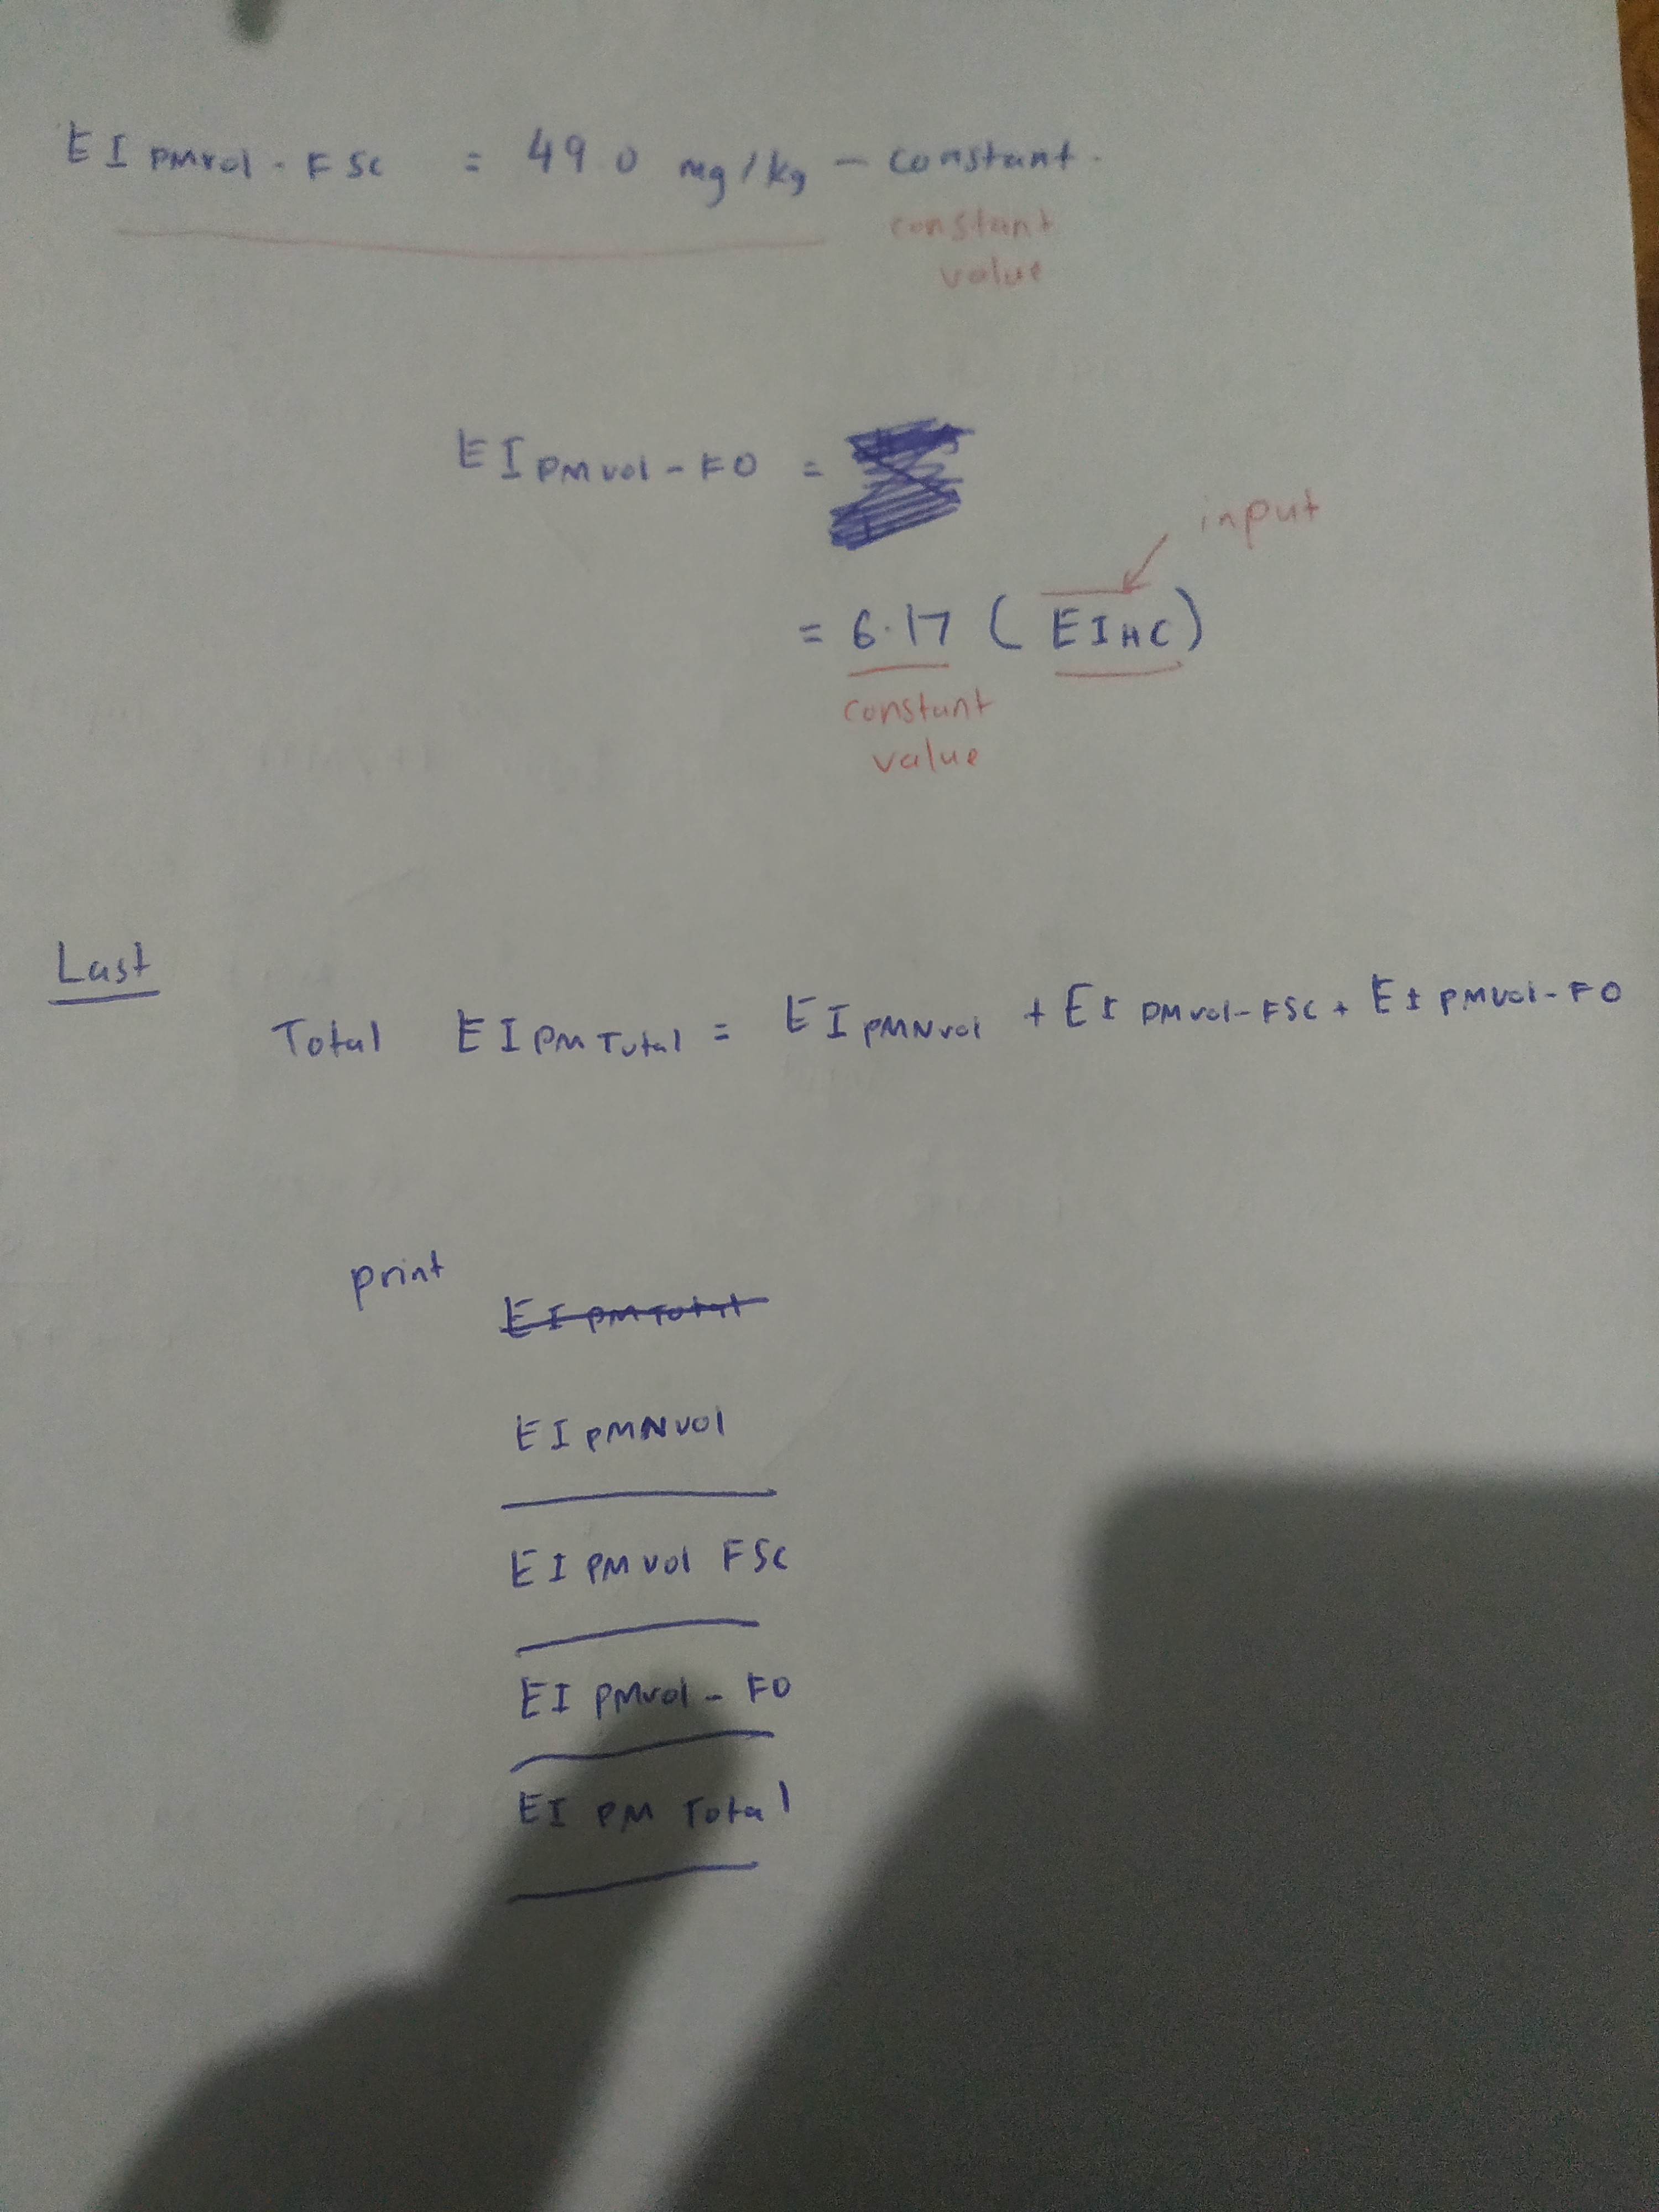 EI PMvol - FSC = 49.0 mg/kg - constant.
constant
value
EI PMvol - FO =
input
= 6.17 ( EI HC )
constant
value
Last
Total EI PM Total = EI PMNvol + EI PMvol-FSC + EI PMvol-FO
print
EI PM Total
EI PMNvol
EI PMvol FSC
EI PMvol - FO
EI PM Total